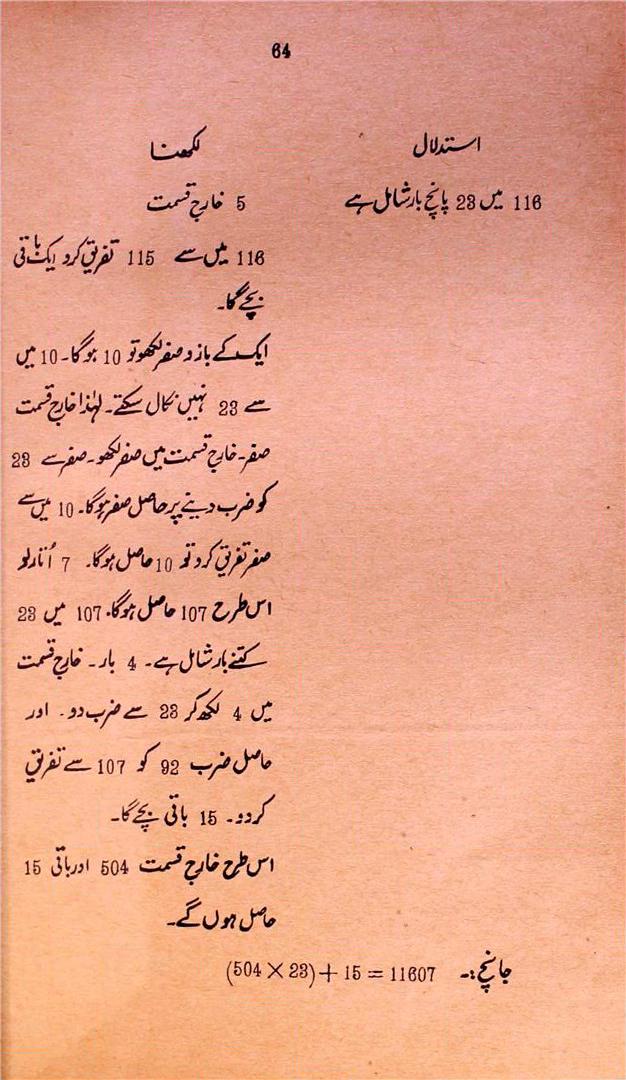 64
استدلال لکھنا
116 میں 23 پانچ بار شامل ہے 5 خارج قسمت
116 میں سے 115 تفریق کرد ایک باقی
بچے گا۔
ایک کے بازو صفر لکھو تو 10 ہوگا۔ 10 میں
سے 23 نہیں نکال سکتے۔ لہٰذا خارج قسمت
صفر۔ خارج قسمت میں صفر لکھو۔ صفر سے 23
کو ضرب دینے پر حاصل صفر ہوگا۔ 10 میں سے
صفر تفریق کرد تو 10 حاصل ہوگا۔ 7 اُتار لو
اس طرح 107 حاصل ہوگا۔ 107 میں 23
کتنے بار شامل ہے۔ 4 بار۔ خارج قسمت
میں 4 لکھ کر 23 سے ضرب دو۔ اور
حاصل ضرب 92 کو 107 سے تفریق
کر دو۔ 15 باقی بچے گا۔
اس طرح خارج قسمت 504 اور باقی 15
حاصل ہوں گے۔
جانچ:۔ (504 × 23) + 15 = 11607